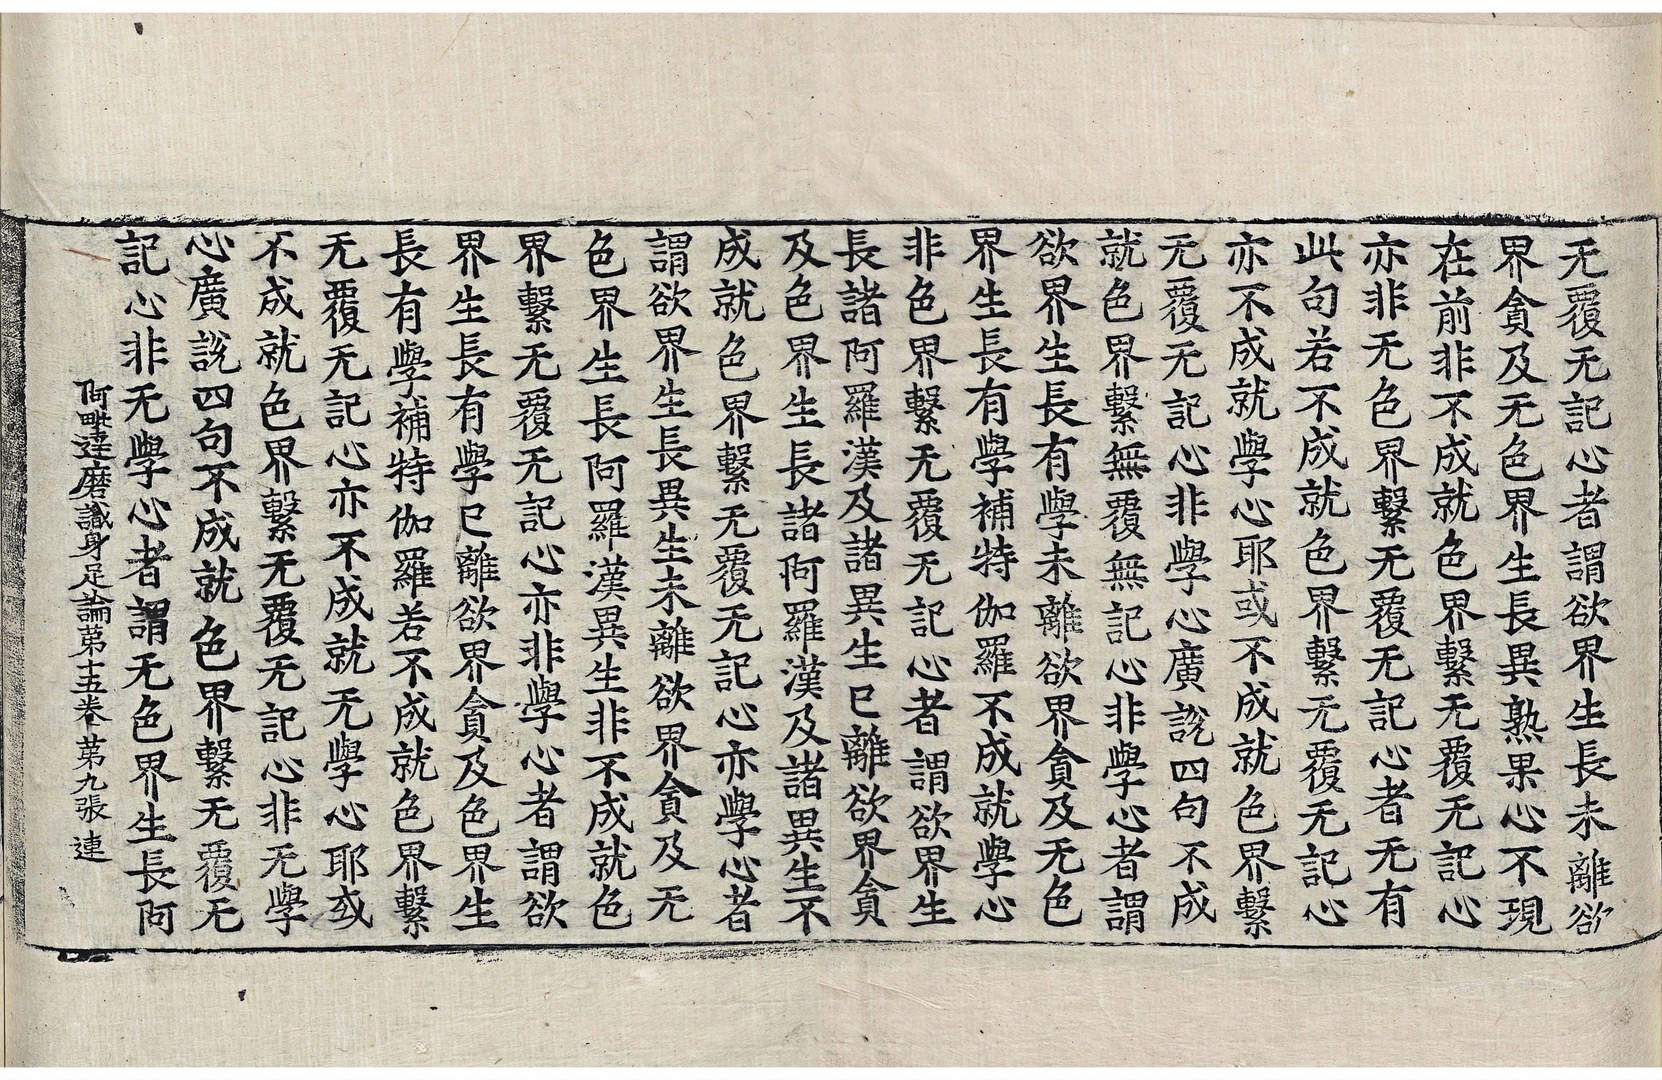 无覆无記心者謂欲界生長未離欲
界貪及无色界生長異熟果心不現
在前非不成就色界繫无覆无記心
亦非无色界繫无覆无記心者无有
此句若不成就色界繫无覆无記心
亦不成就學心耶或不成就色界繫
无覆无記心非學心廣說四句不成
就色界繫無覆無記心非學心者謂
欲界生長有學未離欲界貪及无色
界生長有學補特伽羅不成就學心
非色界繫无覆无記心者謂欲界生
長諸阿羅漢及諸異生已離欲界貪
及色界生長諸阿羅漢及諸異生不
成就色界繫无覆无記心亦學心者
謂欲界生長異生未離欲界貪及无
色界生長阿羅漢異生非不成就色
界繫无覆无記心亦非學心者謂欲
界生長有學已離欲界貪及色界生
長有學補特伽羅若不成就色界繫
无覆无記心亦不成就无學心耶或
不成就色界繫无覆无記心非无學
心廣說四句不成就色界繫无覆无
記心非无學心者謂无色界生長阿
阿毗達磨識身足論第十五卷 第九張 連